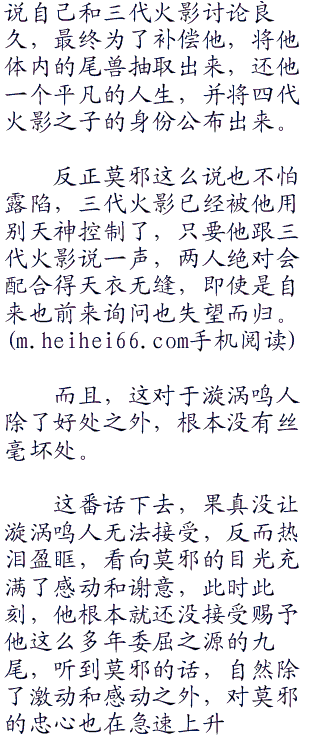 说自己和三代火影讨论良
久，最终为了补偿他，将他
体内的尾兽抽取出来，还他
一个平凡的人生，并将四代
火影之子的身份公布出来。
反正莫邪这么说也不怕
露陷，三代火影已经被他用
别天神控制了，只要他跟三
代火影说一声，两人绝对会
配合得天衣无缝，即使是自
来也前来询问也失望而归。
(m.heihei66.com手机阅读)
而且，这对于漩涡鸣人
除了好处之外，根本没有丝
毫坏处。
这番话下去，果真没让
漩涡鸣人无法接受，反而热
泪盈眶，看向莫邪的目光充
满了感动和谢意，此时此
刻，他根本就还没接受赐予
他这么多年委屈之源的九
尾，听到莫邪的话，自然除
了激动和感动之外，对莫邪
的忠心也在急速上升